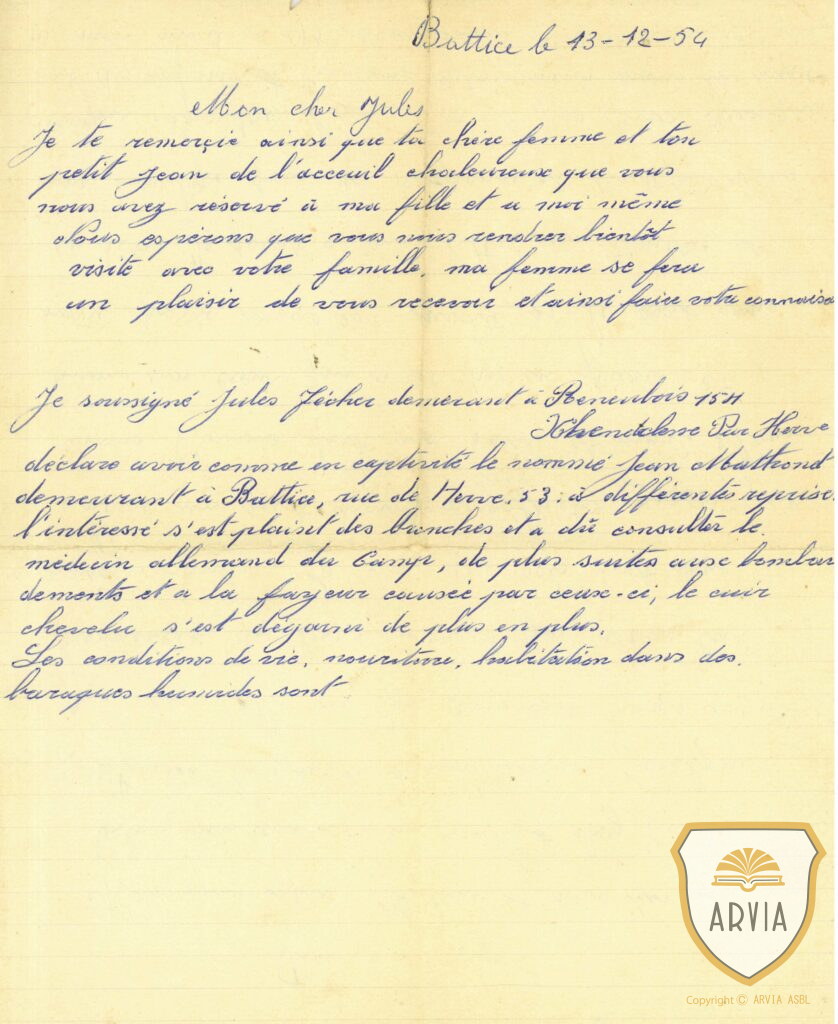 Battice le 13-12-54
Mon cher Jules
Je te remerçie ainsi que ta chère femme et ton
petit Jean de l'acceuil chaleureux que vous
nous avez réservé à ma fille et a moi même
Nous espérons que vous nous rendrer bientôt
visite avec votre famille, ma femme se fera
un plaisir de vous recevoir et ainsi faire votre connaisa
Je soussigné Jules Fécher demeurant à 154
Par Herve
déclare avoir comme en captivité le nommé Jean
demeurant à Battice, rue de Herve. 53: à différentes reprise.
l'intéressé s'est plaint des bronches et a dû consulter le
médecin allemand du Camp, de plus suites aux bombar
dements et a la frayeur causée par ceux-ci, le cuir
chevelu s'est dégarni de plus en plus.
Les conditions de vie, nouriture, habitation dans des
baraques humides sont
ARVIA
Copyright © ARVIA ASBL